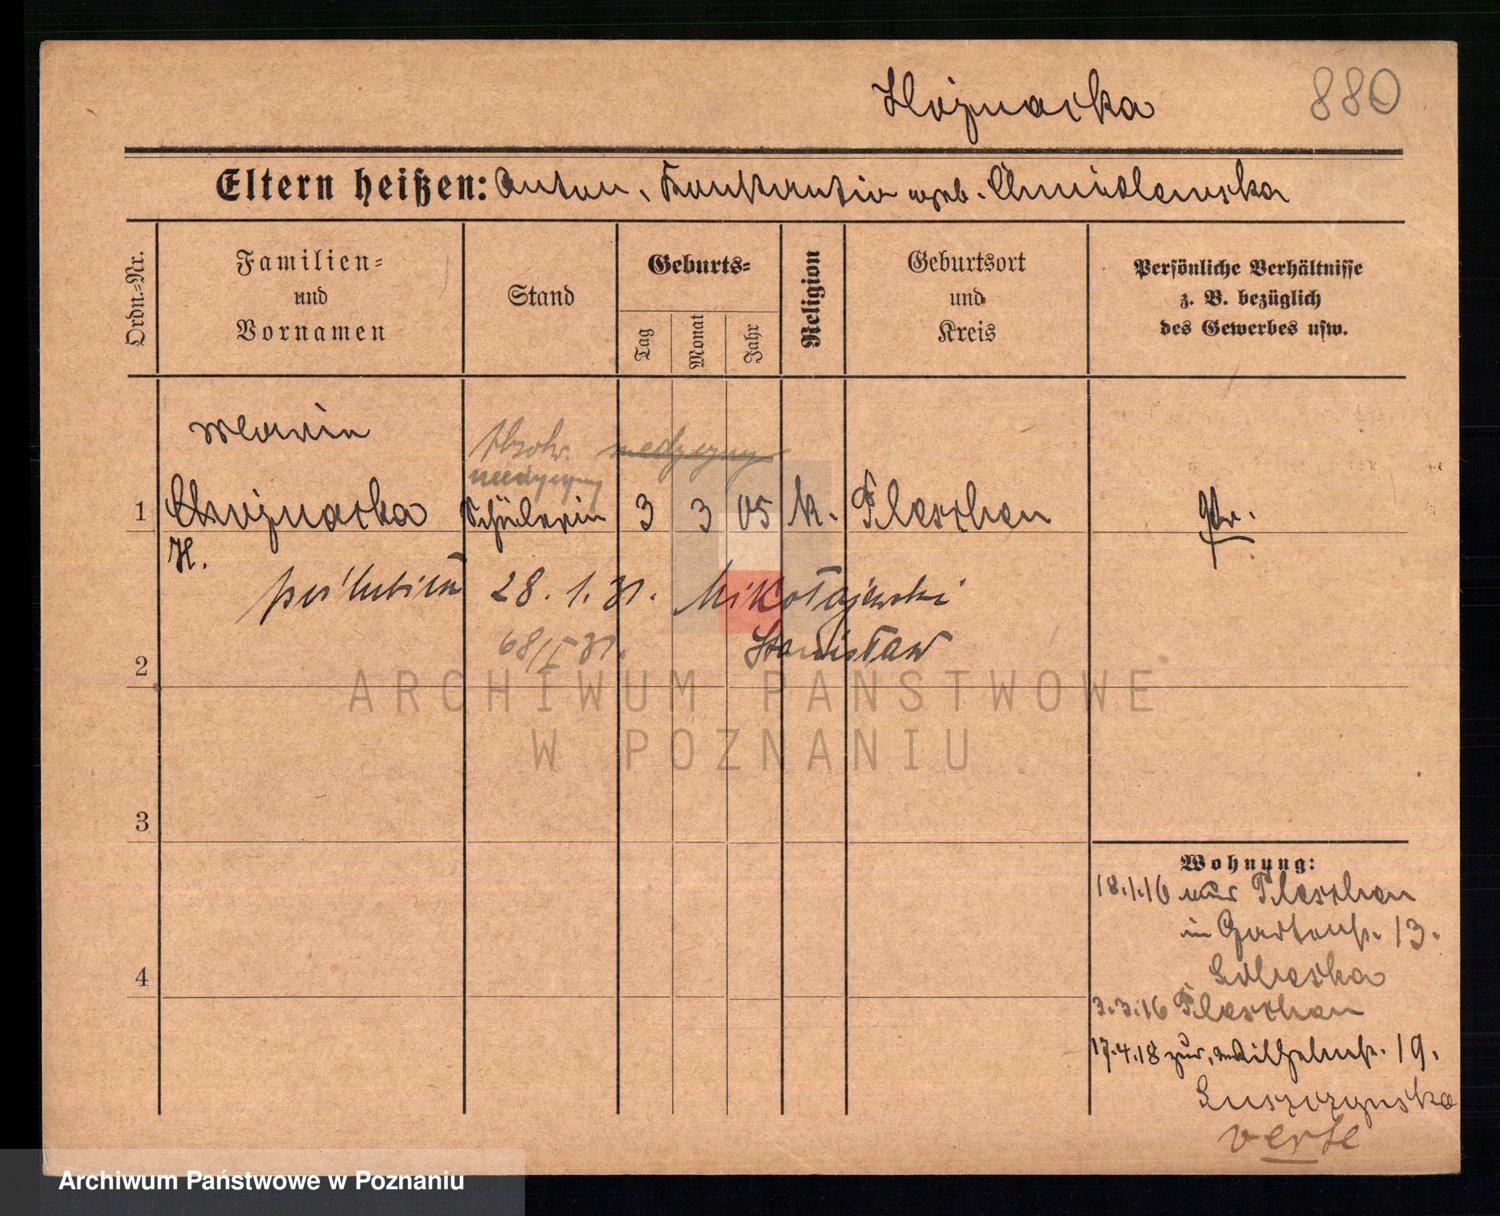 Chojnacka 880
Eltern heißen: Anton, Konstantia geb. Chmielewska
Ordn.-Nr.
Familien-
und
Vornamen
Stand
Geburts-
Tag
Monat
Jahr
Religion
Geburtsort
und
Kreis
Persönliche Verhältnisse
z. B. bezüglich
des Gewerbes usw.
Maria
Absolw. medycyny
medycyny
1 Chojnacka Schülerin 3 3 05 k. Pleschen Pr.
H.
poślubiła 28.1.31. Mikołajewski
68/I 31. Stanisław
2
ARCHIWUM PAŃSTWOWE
W POZNANIU
3
Wohnung:
18.1.16 aus Pleschen
in Gartenstr. 13.
4
3.3.16 Pleschen
17.4.18 zur. Wilhelmstr. 19.
Suszczynska
verte
Archiwum Państwowe w Poznaniu